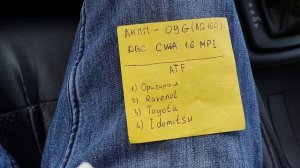 АКПП - 09G (AQ160)
ДВС CWVA 1.6 MPI
ATF
1) Оригинал
2) Ravenol
3) Toyota
4) Idemitsu